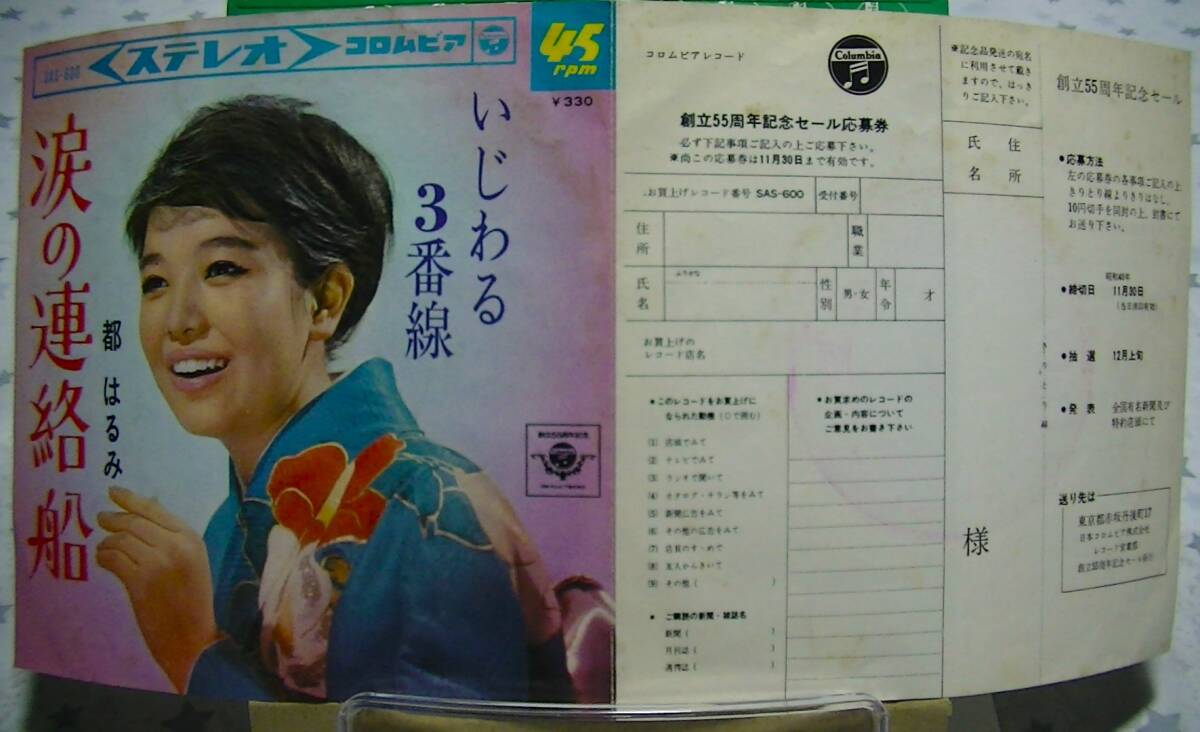 SAS-600
ステレオ
コロムビア
45
rpm
¥330
涙の連絡船
都 はるみ
いじわる
3番線
創立55周年記念
コロムビアレコード
Columbia
創立55周年記念セール応募券
必ず下記事項ご記入の上ご応募下さい。
※尚この応募券は11月30日まで有効です。
お買上げレコード番号 SAS-600
受付番号
住所
職業
ふりがな
氏名
性別
男・女
年令
才
お買上げの
レコード店名
●このレコードをお買上げに
なられた動機(○で囲む)
(1) 店頭でみて
(2) テレビでみて
(3) ラジオで聞いて
(4) カタログ・チラシ等をみて
(5) 新聞広告をみて
(6) その他の広告をみて
(7) 店員のすゝめて
(8) 友人からきいて
(9) その他( )
●ご購読の新聞・雑誌名
新聞( )
月刊誌( )
週刊誌( )
●お買求めのレコードの
企画・内容について
ご意見をお書き下さい
※記念品発送の宛名
に利用させて戴き
ますので、はっき
りご記入下さい。
住所
氏名
様
きりとり線
創立55周年記念セール
●応募方法
左の応募券の各事項ご記入の上
きりとり線よりきりはなし、
10円切手を同封の上、封書にて
お送り下さい。
昭和40年
●締切日 11月30日
(当日消印有効)
●抽選 12月上旬
●発表 全国有名新聞及び
特約店頭にて
送り先は
東京都赤坂丹後町37
日本コロムビア株式会社
レコード営業部
創立55周年記念セール係行